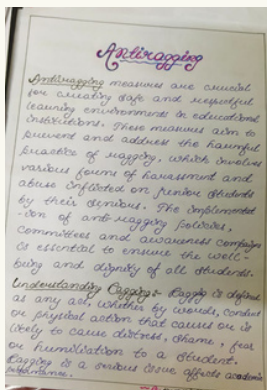 Antiragging
Antiragging measures are crucial
for creating safe and respectful
learning environments in educational
institutions. These measures aim to
prevent and address the harmful
practice of ragging, which involves
various forms of harassment and
abuse inflicted on junior students
by their seniors. The implementat
-ion of anti-ragging policies,
committees and awareness campaigns
is essential to ensure the well-
being and dignity of all students.
Understanding Ragging:- Ragging is defined
as any act, whether by words, conduct
or physical action that causes or is
likely to cause distress, shame, fear
or humiliation to a student.
Ragging is a serious issue affects academic
performance.